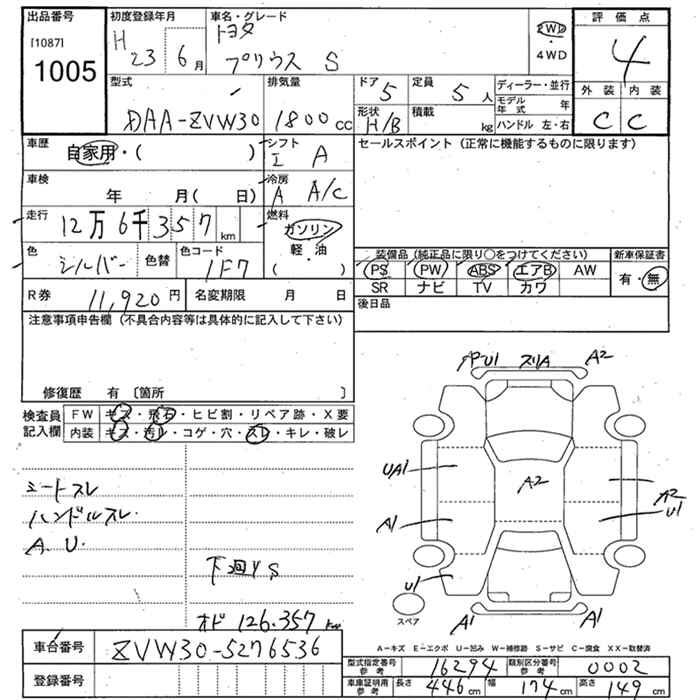 出品番号
[1087]
1005
初度登録年月
H 23 6月
車名・グレード
トヨタ
プリウス S
2WD
・
4WD
評価点
4
外装 内装
C C
型式
DAA-ZVW30
排気量
1800cc
ドア
5
定員
5人
形状
H/B
積載
kg
ディーラー・並行
モデル年式 年
ハンドル 左・右
車歴
自家用・( )
シフト
I A
セールスポイント (正常に機能するものに限ります)
車検
年 月( 日)
冷房
A A/C
走行
12万6千357km
燃料
ガソリン
軽・油
( )
色
シルバー
色替
色コード
1F7
装備品(純正品に限り○をつけてください)
PS PW ABS エアB AW
SR ナビ TV カワ
新車保証書
有・無
R券 11,920円
名変期限 月 日
後日品
注意事項申告欄 (不具合内容等は具体的に記入して下さい)
修復歴 有 〔箇所 〕
検査員
記入欄
FW キズ・飛石・ヒビ割・リペア跡・X要
内装 キズ・汚レ・コゲ・穴・スレ・キレ・破レ
シートスレ
ハンドルスレ
A.U.
下回りS
オド 126.357km
AP-U1 スリA A2
UA1
A2
A2
U1
A1
U1
A1
A1
スペア
A-キズ E-エクボ U-凹み W-補修跡 S-サビ C-腐食 XX-取替済
車台番号 ZVW30-5276536
登録番号
型式指定番号 参考 16294
類別区分番号 参考 0002
車庫証明用 参考 長さ 446cm 幅 174cm 高さ 149cm